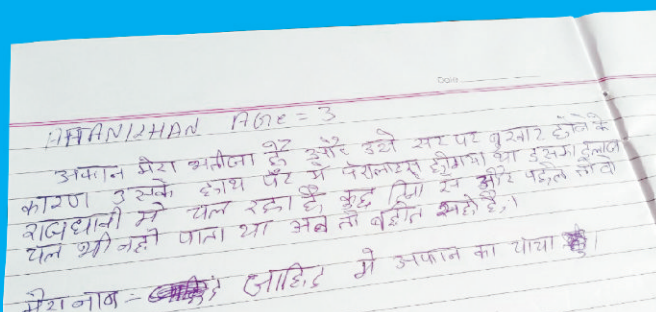 Date
AFFAN KHAN AGE = 3
अफान मेरा भतीजा है और उसे सर पर बुखार होने के
कारण उसके हाथ पैर में पेरालाइस होगया था इसका इलाज
राजधानी में चल रहा है कुछ दिन से और पहले तो वो
चल भी नही पाता था अब तो बहोत सही है।
मेरा नाम = जाहिद में अफान का चाचा हूँ।